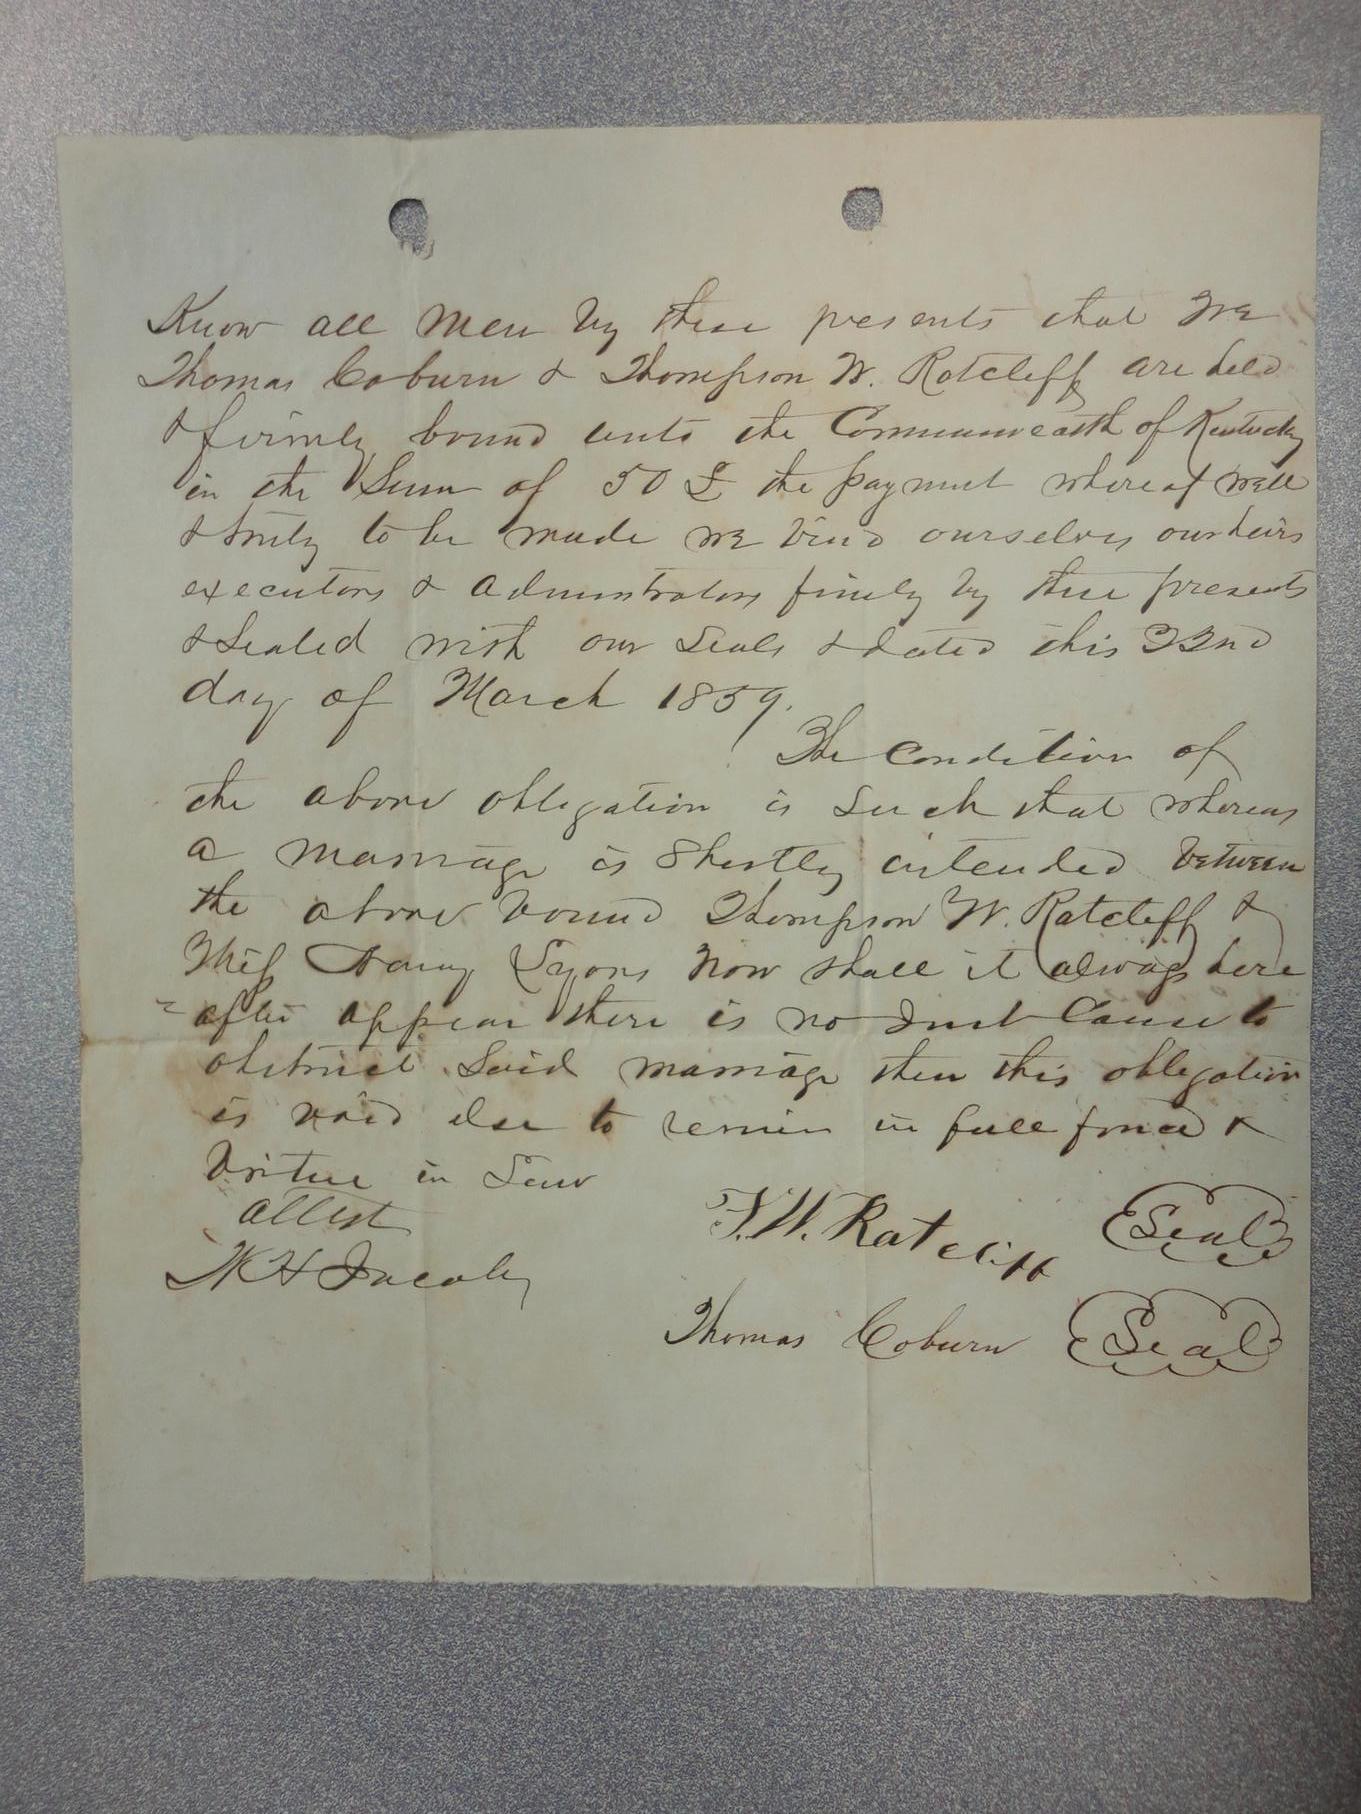 Know all Men by these presents that We
Thomas Coburn & Thompson W. Ratcliff are held
& firmly bound unto the Commonwealth of Kentucky
in the Sum of 50 £ the payment whereof well
& truly to be made we bind ourselves our heirs
executors & administrators firmly by these presents
& Sealed with our Seals & dated this 22nd
day of March 1859.
The Condition of
the above obligation is Such that whereas
a marriage is Shortly intended between
the above bound Thompson W. Ratcliff &
Miss Lyons Now shall it always here
= after appear there is no Just Cause to
obstruct Said marriage then this obligation
is void else to remain in full force &
Virtue in Law
attest
W H Jacoby
T. W. Ratcliff Seal
Thomas Coburn Seal